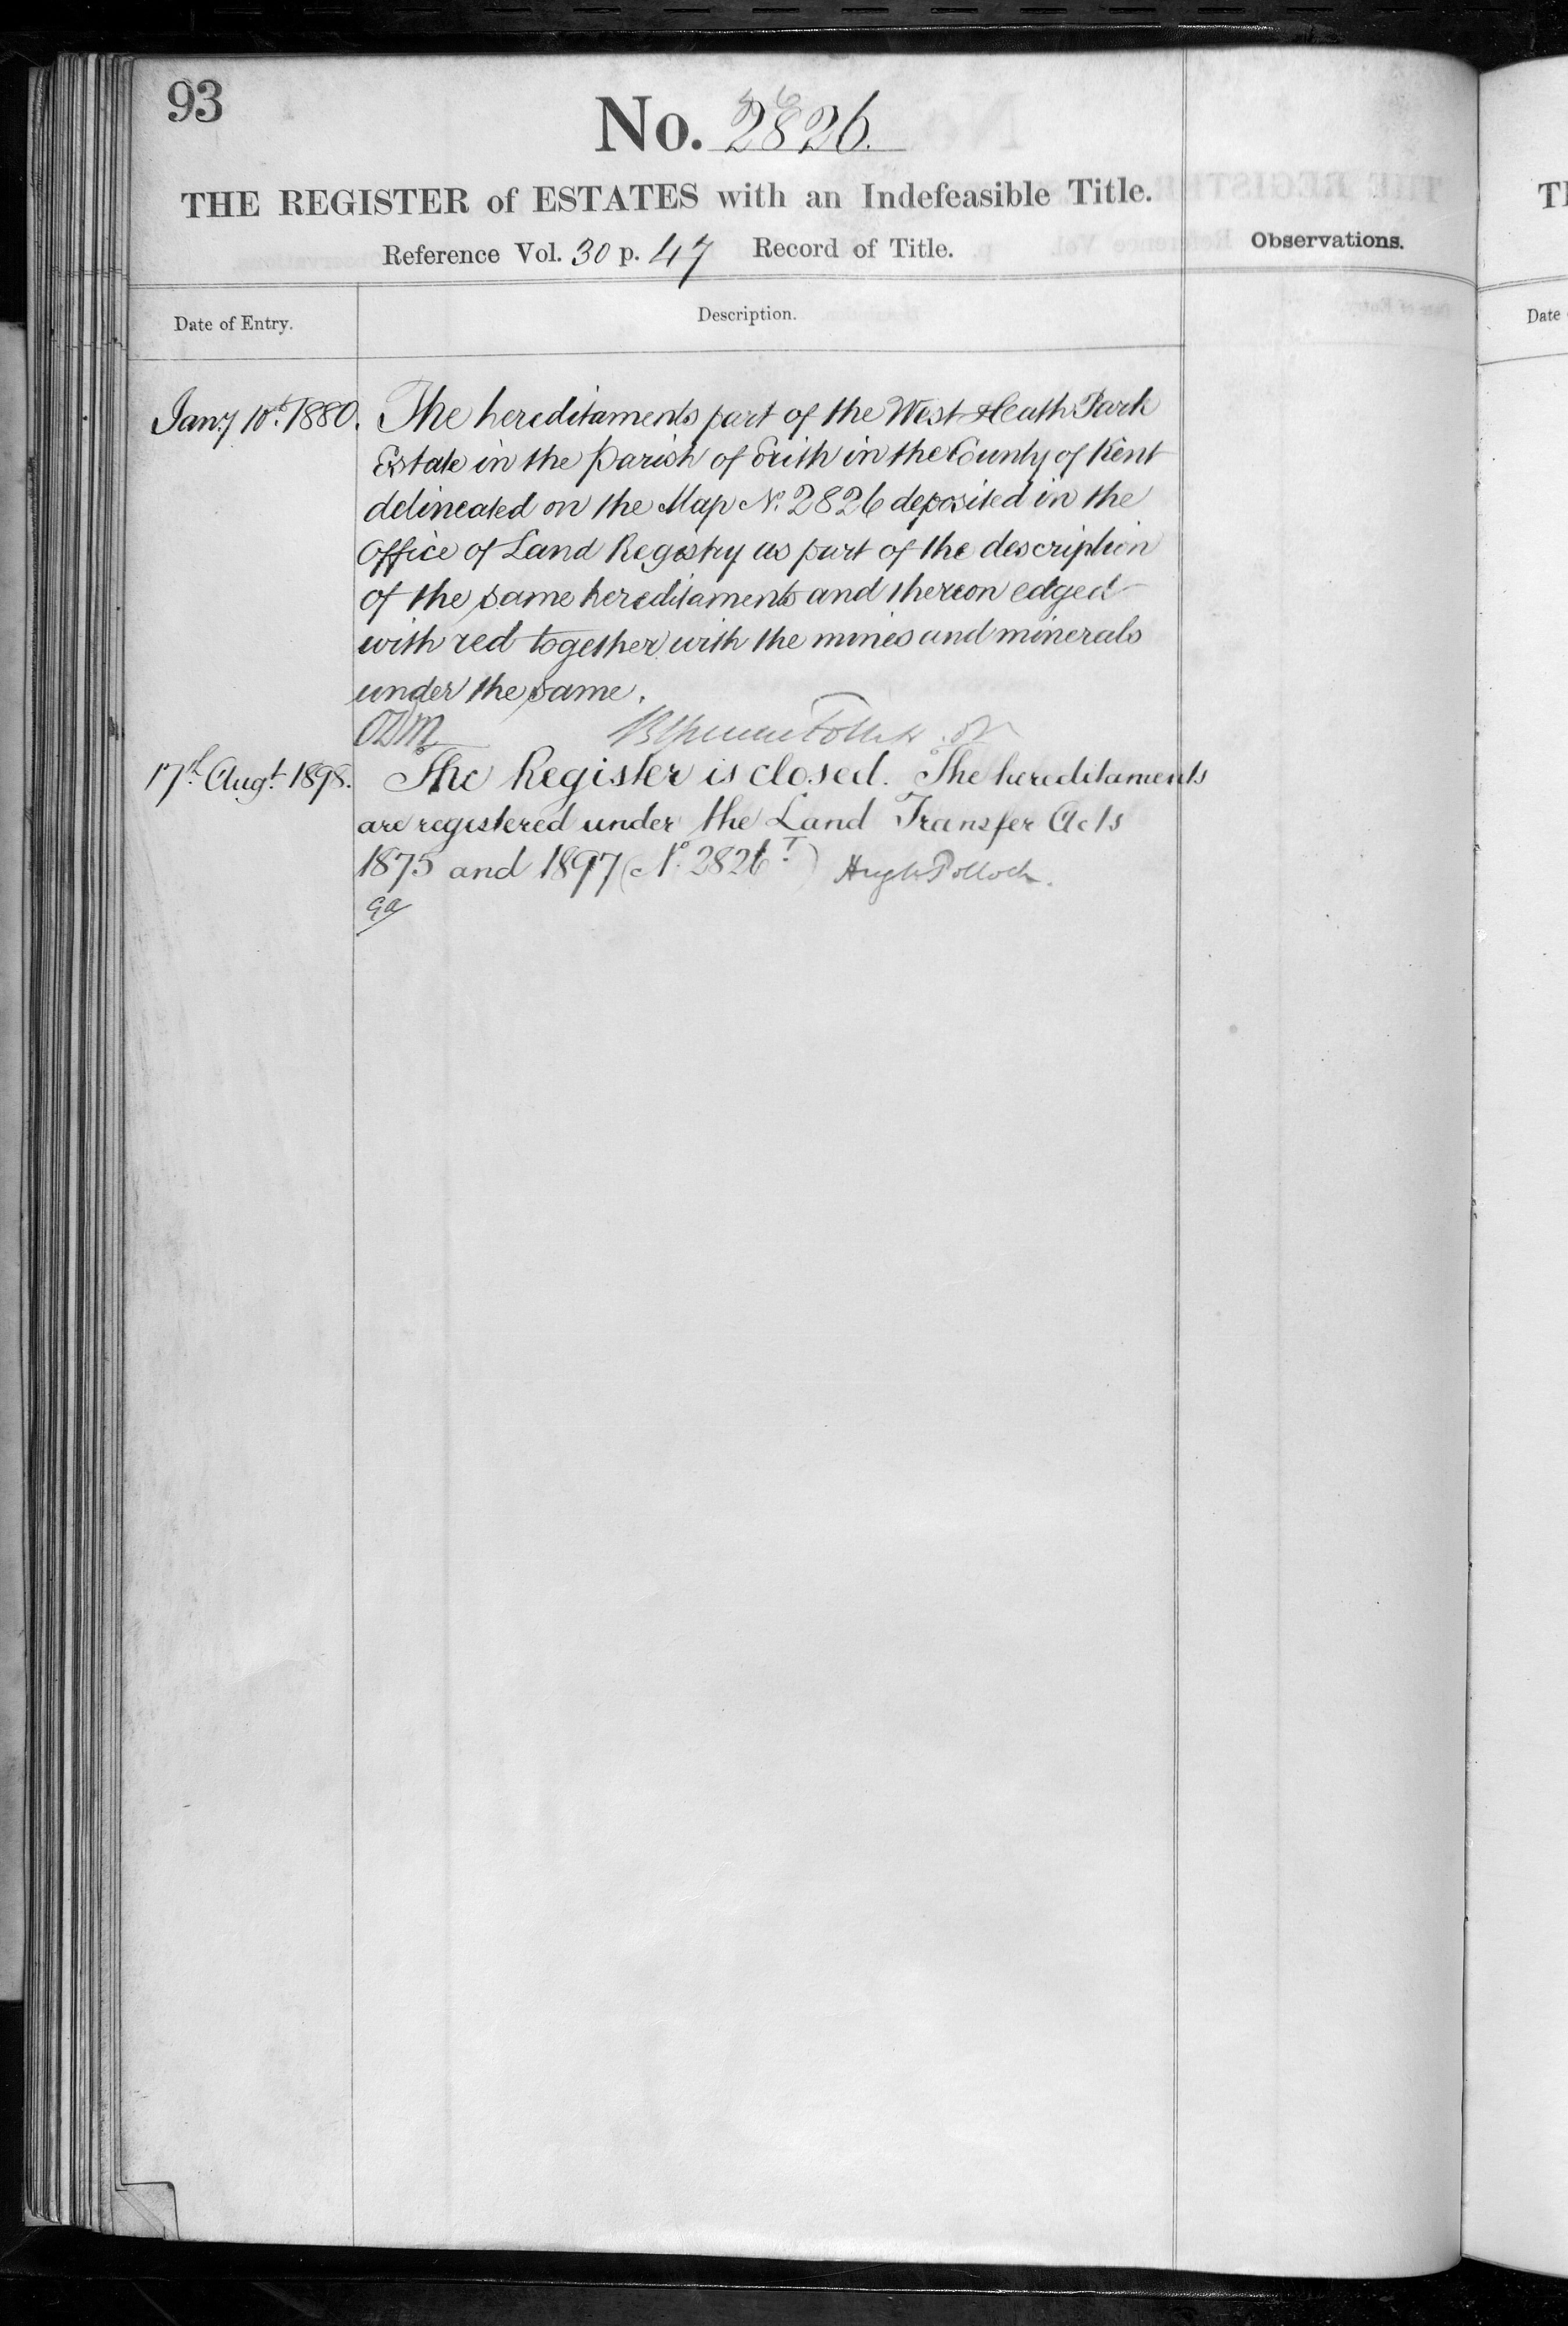 93
No. 2826.
THE REGISTER of ESTATES with an Indefeasible Title.
Reference Vol. 30 p. 47 Record of Title.
Observations.
Date of Entry.
Description.
Jany 10th 1880. The hereditaments part of the West Heath Park
Estate in the Parish of Erith in the County of Kent
delineated on the Map No. 2826 deposited in the
Office of Land Registry as part of the description
of the same hereditaments and thereon edged
with red together with the mines and minerals
under the same.
17th Augt. 1898. The Register is closed. The hereditaments
are registered under the Land Transfer Acts
1875 and 1897 (No. 2826 T) Hugh Pollock.
Date